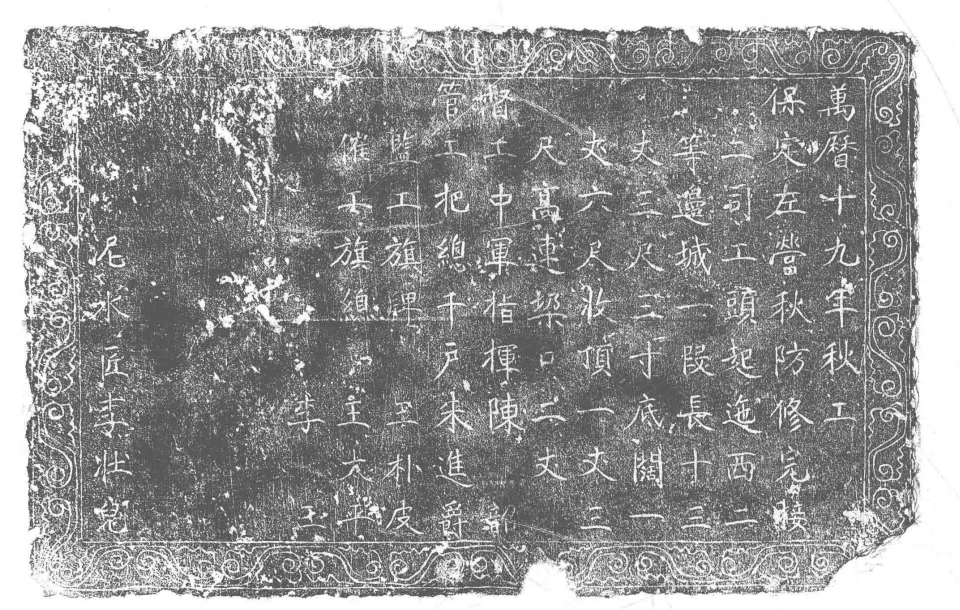 萬曆十九年秋工
保定左營秋防修完接
二司工頭起迤西二
等邊城一段長十三
丈三尺三寸底闊一
丈六尺收頂一丈三
尺高連垜口二丈
督工中軍指揮陳
管工把總千戶朱進爵
監工旗牌 王朴皮
催工旗總 王大平
李 玉
泥水匠李壯兒